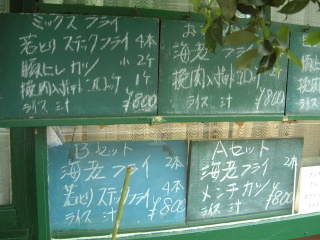 ミックスフライ
若とりスティックフライ 4本
豚ヒレカツ 小 2ケ
挽肉入ポテトコロッケ 1ケ
ライス 汁 ¥800
海老フライ
挽肉入ポテトコロッケ
ライス 汁 ¥800
Bセット
海老フライ 2本
若とりスティックフライ 4本
ライス 汁 ¥800
Aセット
海老フライ 2本
メンチカツ
ライス 汁 ¥800